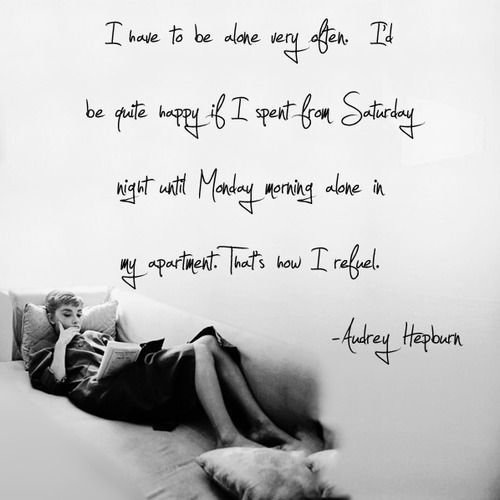 I have to be alone very often. I'd
be quite happy if I spent from Saturday
night until Monday morning alone in
my apartment. That's how I refuel.
-Audrey Hepburn